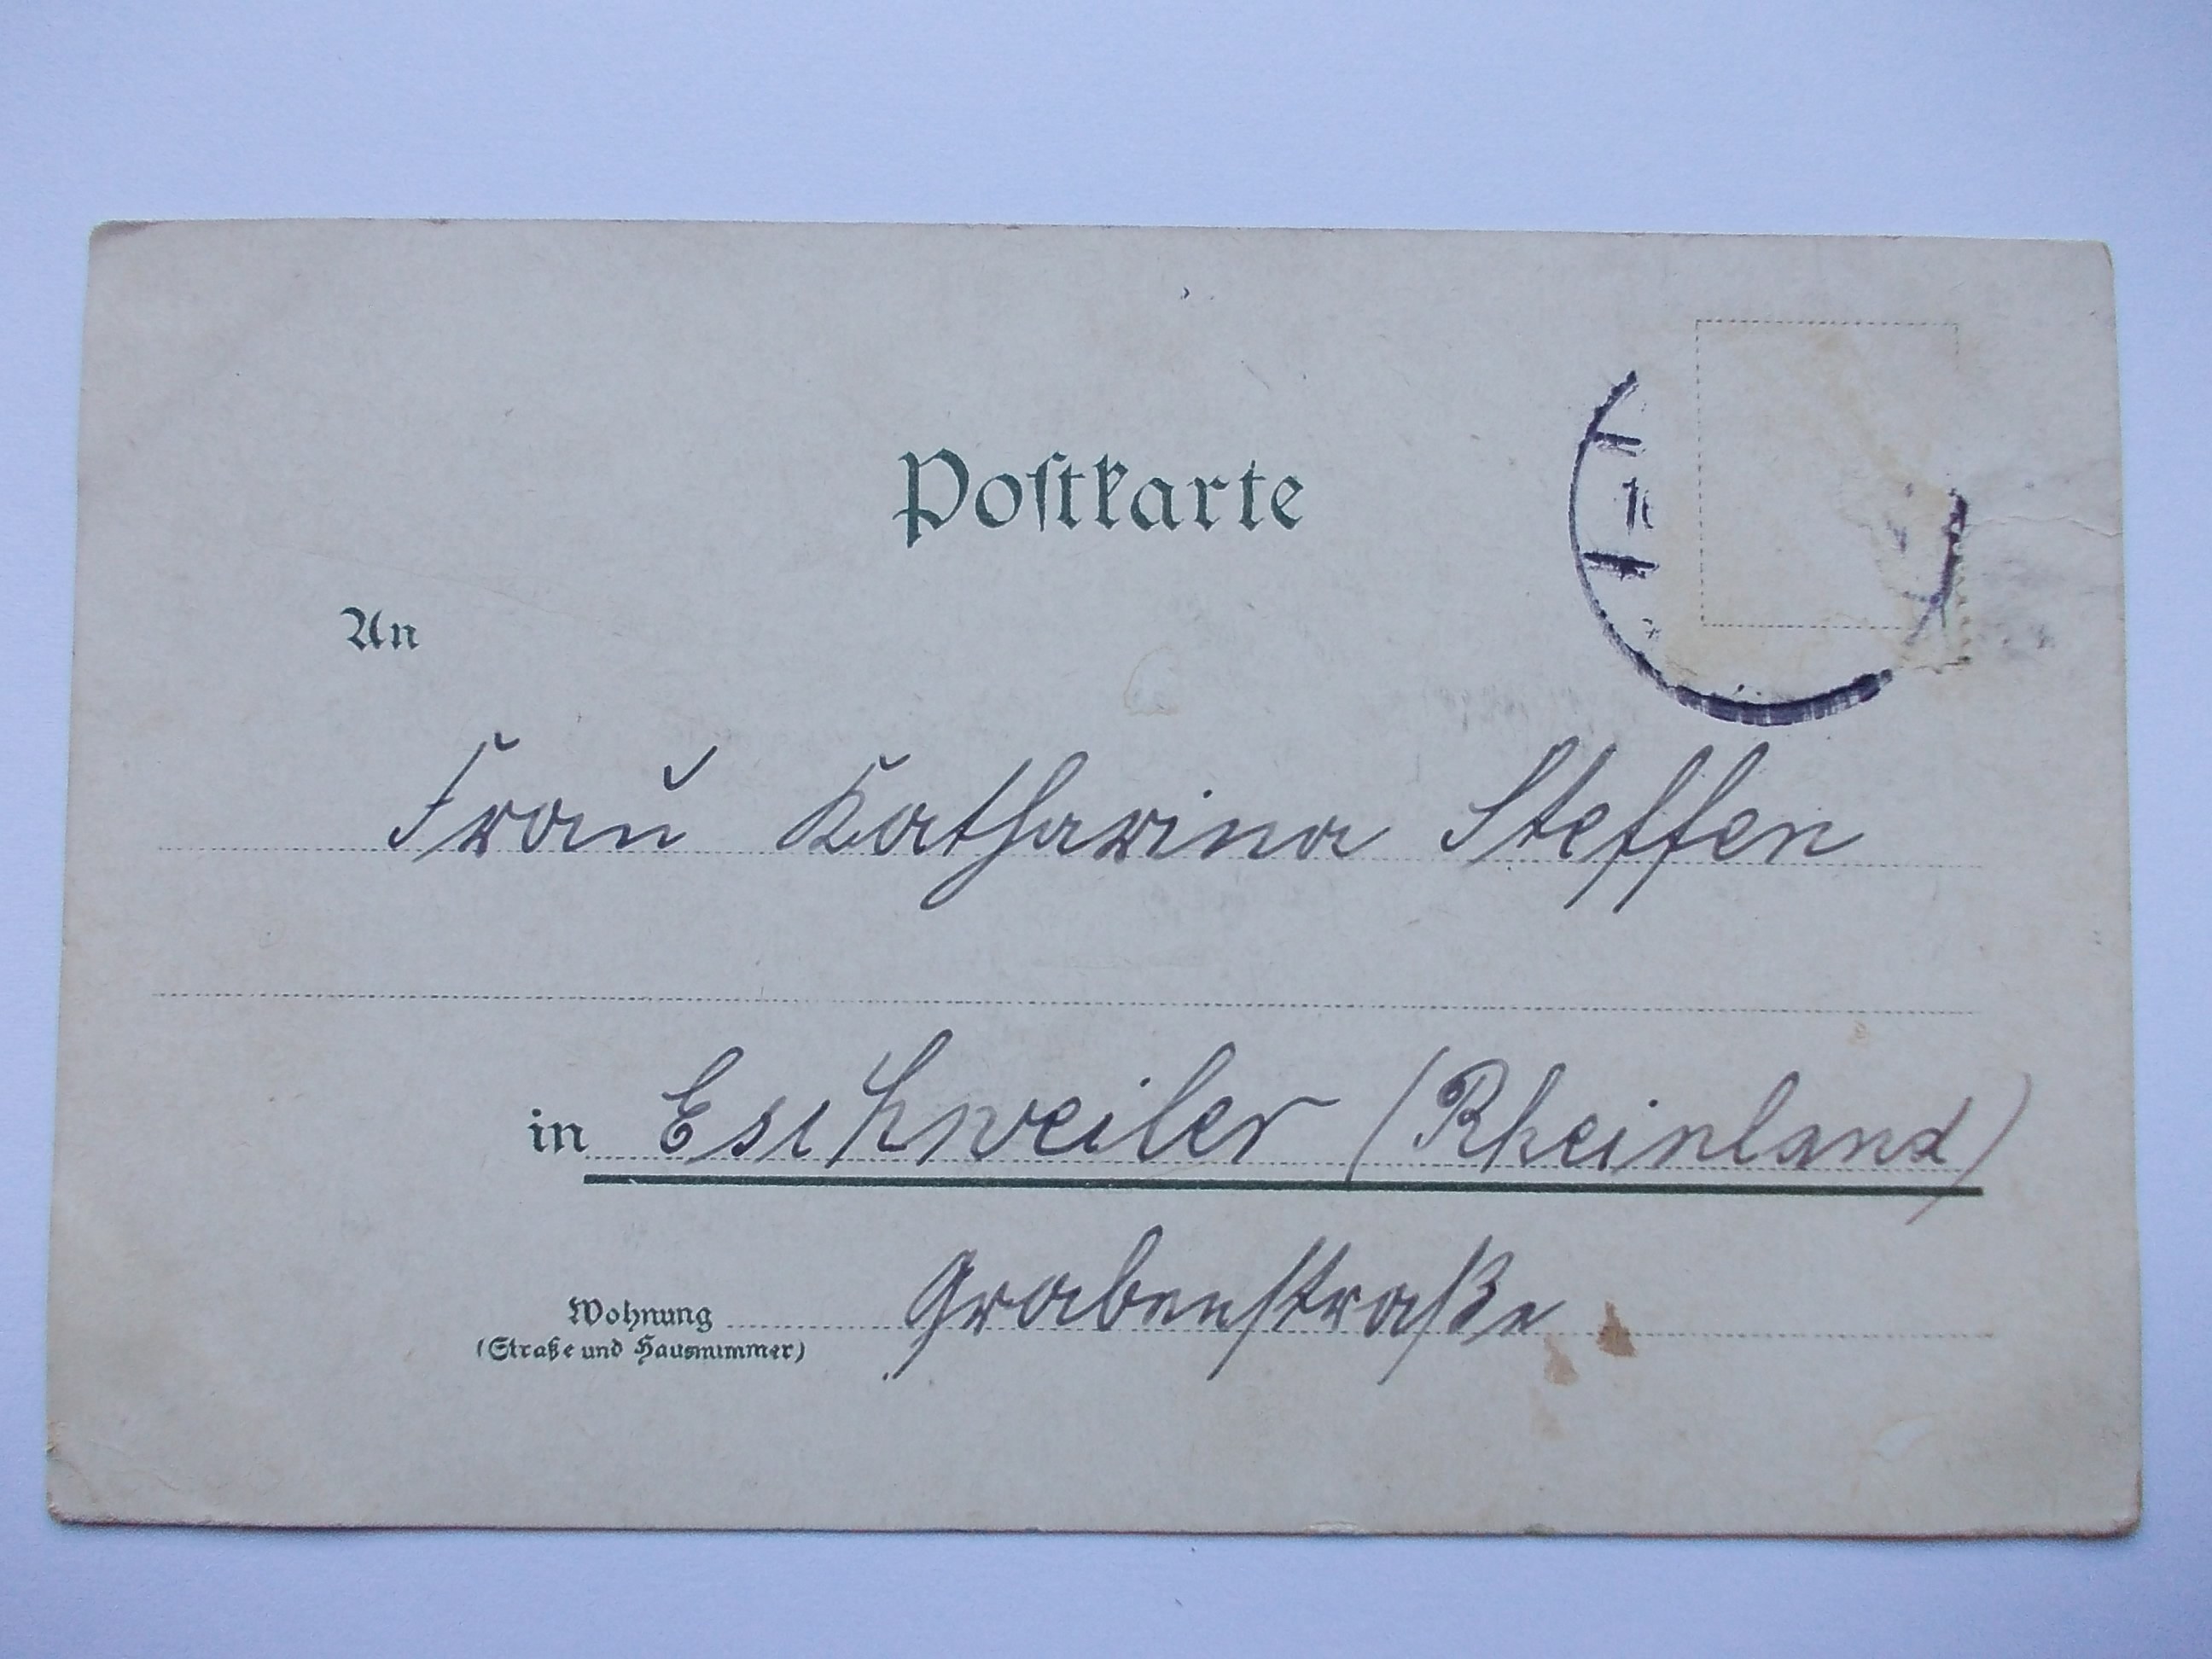 Postkarte
An
Frau Katharina Steffen
in Eschweiler (Rheinland)
Wohnung Grabenstraße
(Straße und Hausnummer)